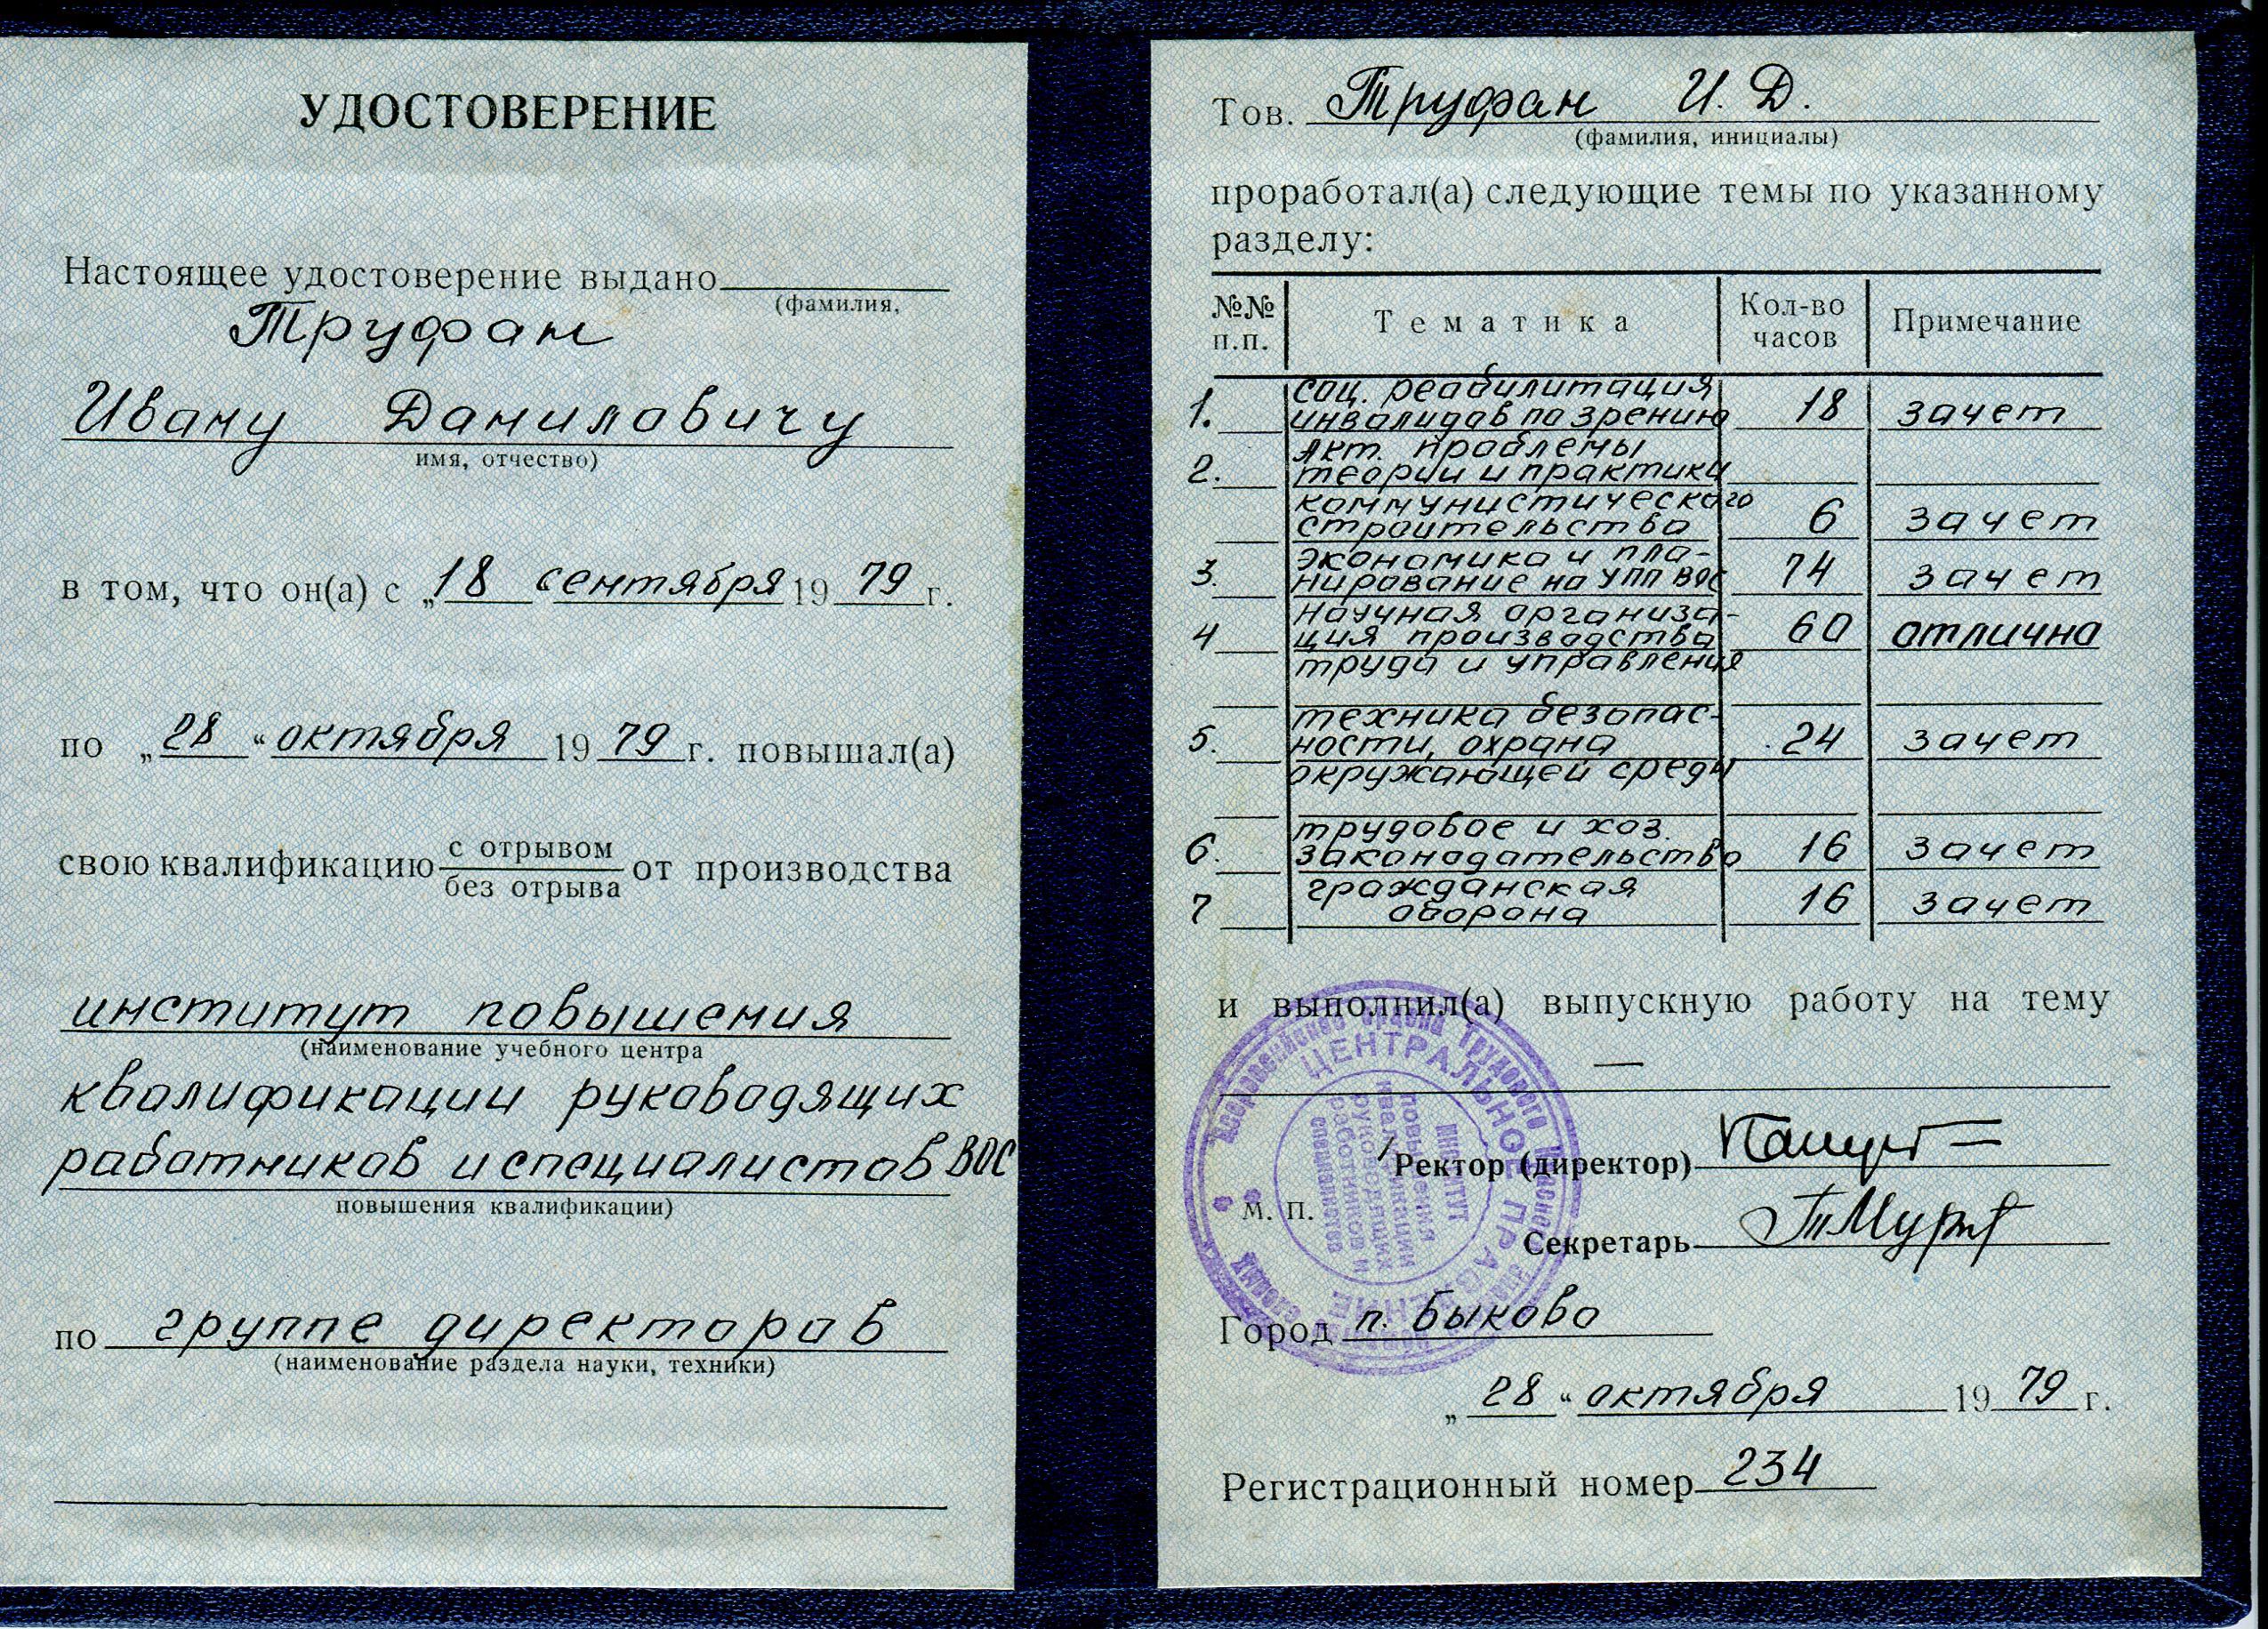 УДОСТОВЕРЕНИЕ
Настоящее удостоверение выдано
(фамилия,
Труфан
Ивану Даниловичу
имя, отчество)
в том, что он(а) с „18 сентября 1979 г.
по „28“ октября 1979 г. повышал(а)
свою квалификацию с отрывом от производства
без отрыва
институт повышения
(наименование учебного центра
квалификации руководящих
работников и специалистов ВОС
повышения квалификации)
по группе директоров
(наименование раздела науки, техники)
Тов. Труфан И. Д.
(фамилия, инициалы)
проработал(а) следующие темы по указанному
разделу:
№№ п.п. Тематика Кол-во часов Примечание
1. соц. реабилитация
инвалидов по зрению 18 зачет
акт. проблемы
2. теории и практики
коммунистического
строительства 6 зачет
экономика и пла-
3. нирование на УПП ВОС 74 зачет
научная организа-
4 ция производства 60 отлично
труда и управления
техника безопас-
5. ности, охрана 24 зачет
окружающей среды
трудовое и хоз.
6. законодательство 16 зачет
гражданская
7 оборона 16 зачет
и выполнил(а) выпускную работу на тему
—
Ректор (директор)
М. П.
Секретарь
Город п. Быково
„28“ октября 1979 г.
Регистрационный номер 234
Всероссийское ордена Трудового Красного
слепых
ЦЕНТРАЛЬНОЕ ПРАВЛЕНИЕ
ИНСТИТУТ
повышения
квалификации
руководящих
работников и
специалистов